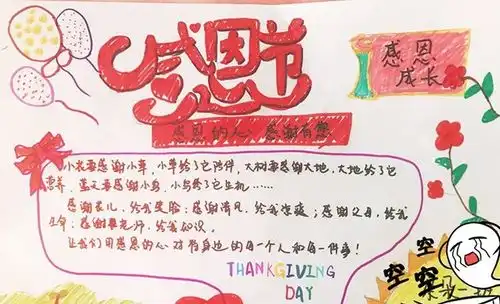 感恩节
感恩的心 感谢有您
感恩
成长
小花要感谢小草，小草给了它陪伴，大树要感谢大地，大地给了它
营养，蓝天要感谢小鸟，小鸟给了它生机……
感谢花儿，给我笑脸；感谢清风，给我凉爽；感谢父母，给我
生命；感谢老师，给我知识。
让我们用感恩的心对待身边的每一个人和每一件事！
THANKGIVING
DAY
空空
空空